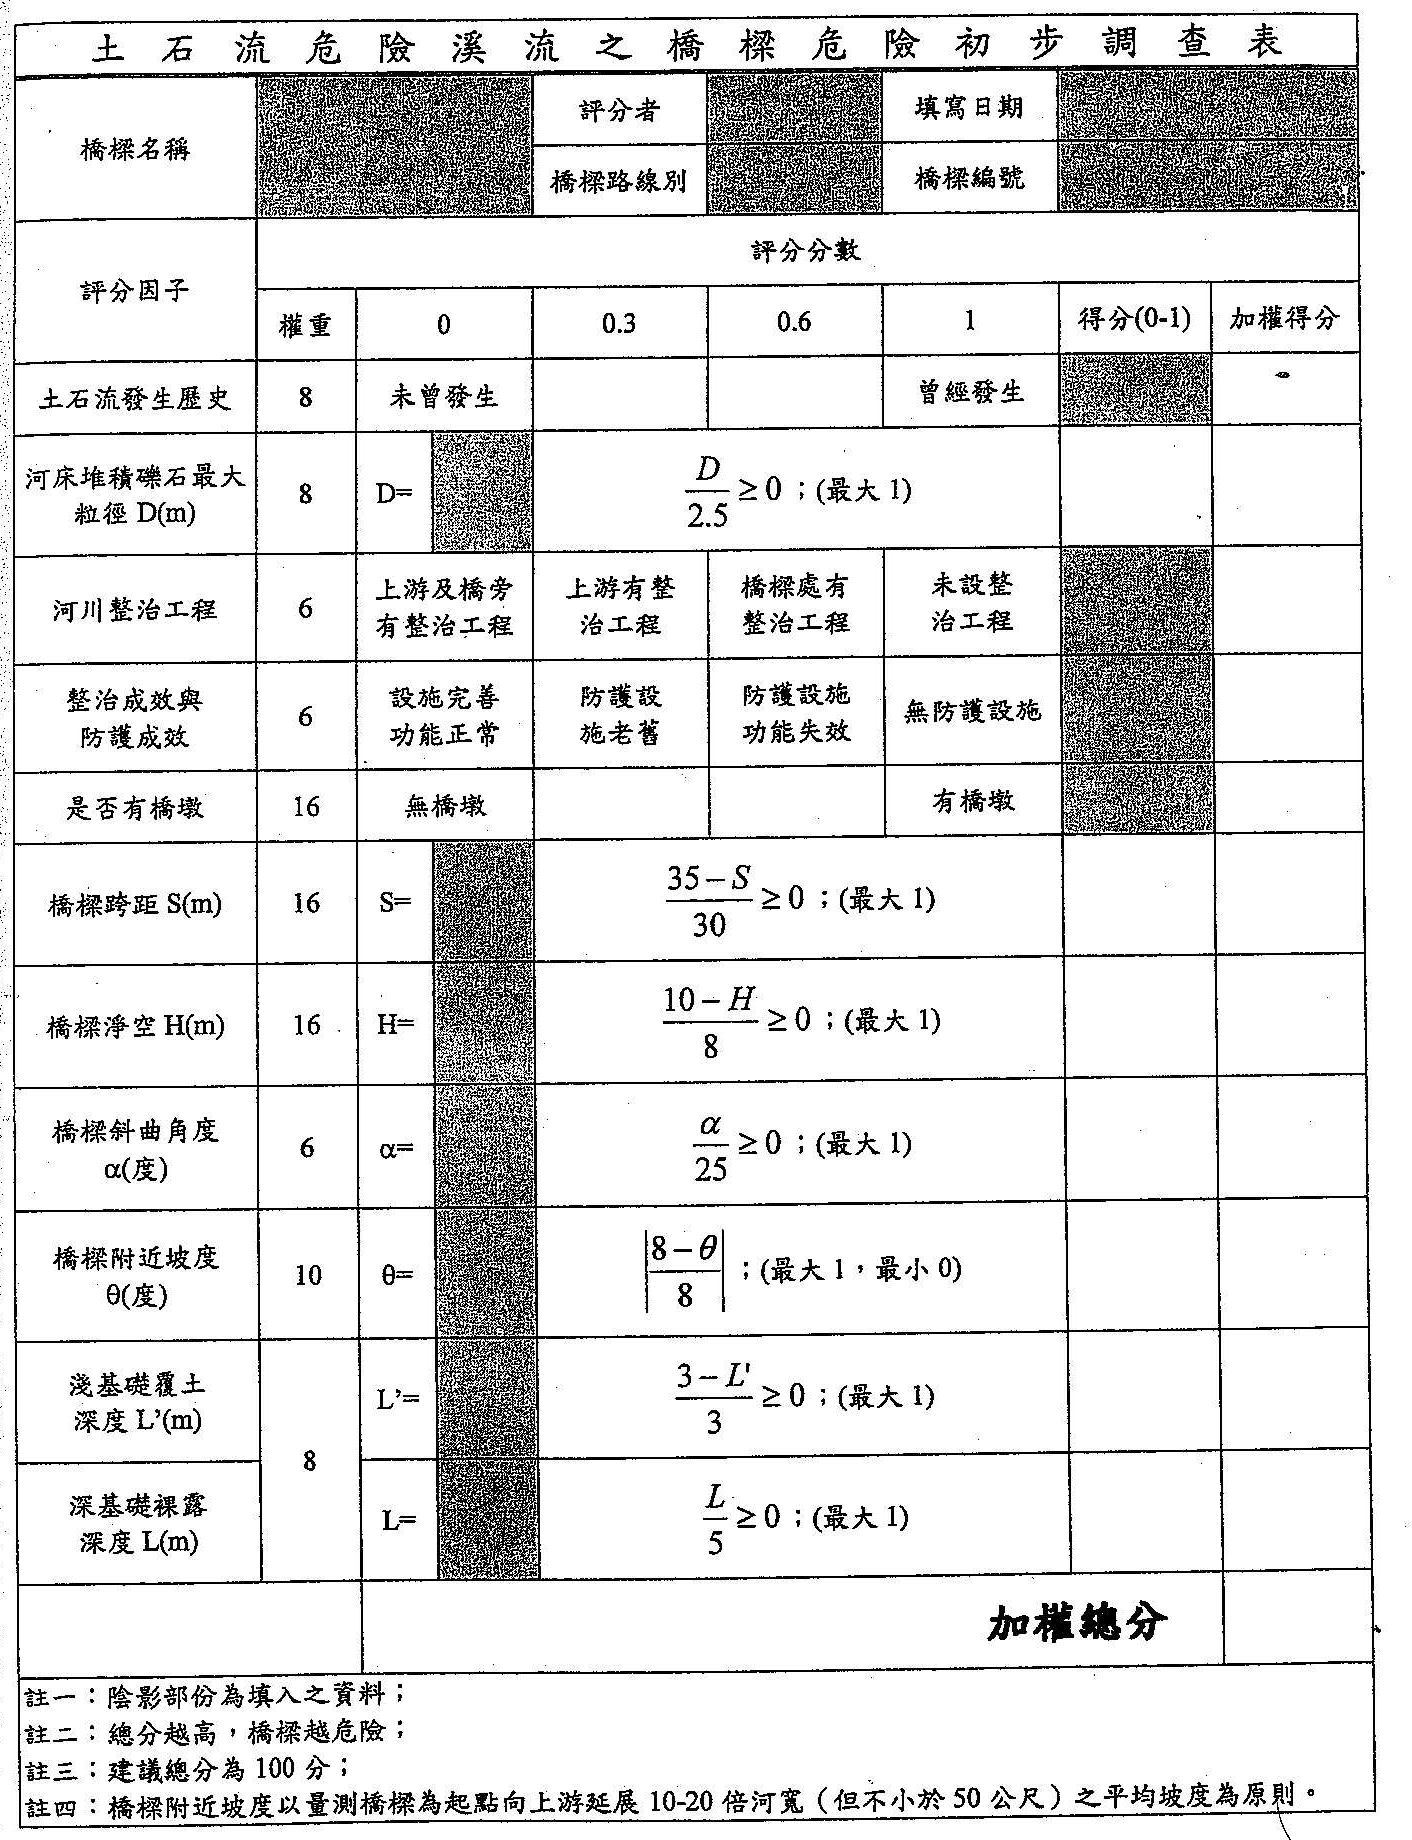 土石流危險溪流之橋樑危險初步調查表
橋樑名稱
評分者
填寫日期
橋樑路線別
橋樑編號
評分因子
評分分數
權重 0 0.3 0.6 1 得分(0-1) 加權得分
土石流發生歷史 8 未曾發生 曾經發生
河床堆積礫石最大
粒徑 D(m)
8 D=
D/2.5 ≥ 0；(最大 1)
河川整治工程
6
上游及橋旁
有整治工程
上游有整
治工程
橋樑處有
整治工程
未設整
治工程
整治成效與
防護成效
6
設施完善
功能正常
防護設
施老舊
防護設施
功能失效
無防護設施
是否有橋墩 16 無橋墩 有橋墩
橋樑跨距 S(m) 16 S=
35－S/30 ≥ 0；(最大 1)
橋樑淨空 H(m) 16 H=
10－H/8 ≥ 0；(最大 1)
橋樑斜曲角度
α(度)
6 α=
α/25 ≥ 0；(最大 1)
橋樑附近坡度
θ(度)
10 θ=
|8－θ/8|；(最大 1，最小 0)
淺基礎覆土
深度 L’(m)
8
L’=
3－L'/3 ≥ 0；(最大 1)
深基礎裸露
深度 L(m)
L=
L/5 ≥ 0；(最大 1)
加權總分
註一：陰影部份為填入之資料；
註二：總分越高，橋樑越危險；
註三：建議總分為 100 分；
註四：橋樑附近坡度以量測橋樑為起點向上游延展 10-20 倍河寬（但不小於 50 公尺）之平均坡度為原則。